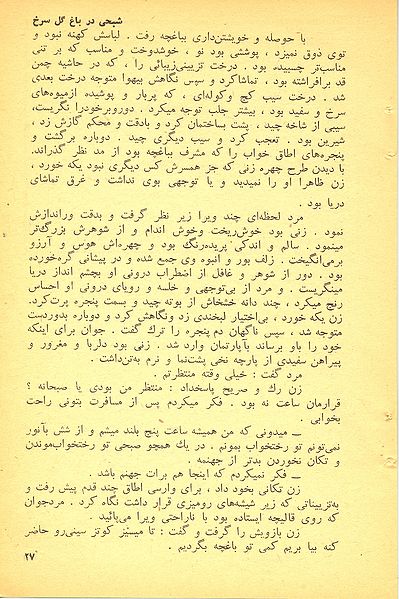 شبحی در باغ گل سرخ
با حوصله و خویشتن‌داری بباغچه رفت . لباسش کهنه نبود و
توی ذوق نمیزد ، پوششی بود نو ، خوشدوخت و مناسب که بر تنی
مناسب‌تر چسبیده بود . درخت تزیینی‌زیبائی را ، که در حاشیه چمن
قد برافراشته بود ، تماشاکرد و سپس نگاهش بیهوا متوجه درخت بعدی
شد . درخت سیب کج وکوله‌ای ، که پربار و پوشیده ازمیوه‌های
سرخ و سفید بود ، بیشتر جلب توجه میکرد . دوروبرخودرا نگریست،
سیبی از شاخه چید ، پشت بساختمان کرد و بادقت و محکم گازش زد ،
شیرین بود . تعجب کرد و سیب دیگری چید . دوباره برگشت و
پنجره‌های اطاق خواب را که مشرف بباغچه بود از مد نظر گذراند.
با دیدن طرح چهره زنی که جز همسرش کس دیگری نبود یکه خورد ،
زن ظاهرا او را نمیدید و یا توجهی بوی نداشت و غرق تماشای
دریا بود .
مرد لحظه‌ای چند ویرا زیر نظر گرفت و بدقت وراندازش
نمود . زنی بود خوش‌ریخت وخوش اندام و از شوهرش بزرگ‌تر
مینمود . سالم و اندکی پریده‌رنگ بود و چهره‌اش هوس و آرزو
برمی‌انگیخت . زلف بور و انبوه وی جمع شده و در پیشانی گره‌خورده
بود . دور از شوهر و غافل از اضطراب درونی او بچشم انداز دریا
مینگریست . و مرد از بی‌توجهی و خلسه و رویای درونی او احساس
رنج میکرد ، چند دانه خشخاش از بوته چید و بسمت پنجره پرت‌کرد.
زن یکه خورد ، بی‌اختیار لبخندی زد ونگاهش کرد و دوباره بدوردست
متوجه شد ، سپس ناگهان دم پنجره را ترك گفت . جوان برای اینکه
خود را باو برساند بآپارتمان وارد شد . زنی بود دلربا و مغرور و
پیراهن سفیدی از پارچه نخی پشت‌نما و نرم به‌تن‌داشت .
مرد گفت : خیلی وقته منتظرتم .
زن رك و صریح پاسخداد : منتظر من بودی یا صبحانه ؟
قرارمان ساعت نه بود . فکر میکردم پس از مسافرت بتونی راحت
بخوابی .
ــ میدونی که من همیشه ساعت پنج بلند میشم و از شش بآنور
نمی‌تونم تو رختخواب بمونم . در یك همچو صبحی تو رختخواب‌موندن
و تکان نخوردن بدتر از جهنمه .
ــ فکر نمیکردم که اینجا هم برات جهنم باشد .
زن تکانی بخود داد ، برای وارسی اطاق چند قدم پیش رفت و
به‌تزییناتی که زیر شیشه‌های رومیزی قرار داشت نگاه کرد . مردجوان
که روی قالیچه ایستاده بود با ناراحتی ویرا می‌پائید .
زن بازویش را گرفت و گفت : تا میسز کوتز سینی‌رو حاضر
کنه بیا بریم کمی تو باغچه بگردیم .
۲۷